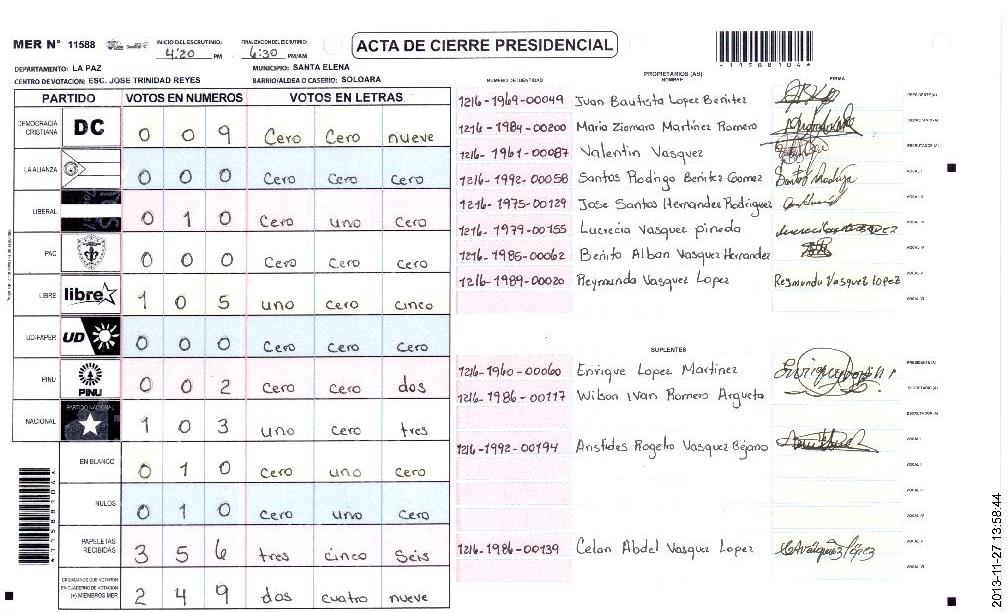 MER N° 11588
INICIO DEL ESCRUTINIO: 4:20 PM
FINALIZACION DEL ESCRUTINIO: 6:30 PM/AM
ACTA DE CIERRE PRESIDENCIAL
DEPARTAMENTO: LA PAZ
MUNICIPIO: SANTA ELENA
CENTRO DE VOTACION: ESC. JOSE TRINIDAD REYES
BARRIO/ALDEA O CASERIO: SOLOARA
PARTIDO VOTOS EN NUMEROS VOTOS EN LETRAS
DEMOCRACIA CRISTIANA DC 0 0 9 Cero Cero nueve
LA ALIANZA 0 0 0 Cero Cero Cero
LIBERAL 0 1 0 Cero uno Cero
PAC 0 0 0 Cero Cero Cero
LIBRE libre 1 0 5 uno cero cinco
UD-FAPER UD 0 0 0 Cero Cero Cero
PINU PINU 0 0 2 Cero cero dos
NACIONAL PARTIDO NACIONAL 1 0 3 uno cero tres
EN BLANCO 0 1 0 Cero uno cero
NULOS 0 1 0 cero uno cero
PAPELETAS RECIBIDAS 3 5 6 tres cinco Seis
CIUDADANOS QUE VOTARON
EN CUADERNO DE VOTACION
(+) MIEMBROS MER 2 4 9 dos cuatro nueve
*11588104*
NUMERO DE IDENTIDAD PROPIETARIOS (AS) NOMBRE FIRMA
1216-1969-00049 Juan Bautista Lopez Benitez PRESIDENTE (A)
1216-1984-00200 Maria Ziomara Martínez Romero SECRETARIO (A)
1216-1961-00087 Valentin Vasquez ESCRUTADOR (A)
1216-1992-00058 Santos Rodrigo Benitez Gomez VOCAL I
1216-1975-00129 Jose Santos Hernandez Rodriguez VOCAL II
1216-1979-00155 Lucrecia Vasquez pineda VOCAL III
1216-1986-00062 Benito Alban Vasquez Hernandez VOCAL IV
1216-1989-00020 Reymunda Vasquez Lopez Reymunda Vasquez Lopez VOCAL V
VOCAL VI
SUPLENTES
1216-1960-00060 Enrique Lopez Martinez PRESIDENTE (A)
1216-1986-00117 Wilson Ivan Romero Argueta SECRETARIO (A)
ESCRUTADOR (A)
1216-1992-00194 Aristides Rogelo Vasquez Bejano VOCAL I
VOCAL II
VOCAL III
VOCAL IV
1216-1986-00139 Celan Abdel Vasquez Lopez VOCAL V
VOCAL VI
*11588104*
2013-11-27 13:58:44